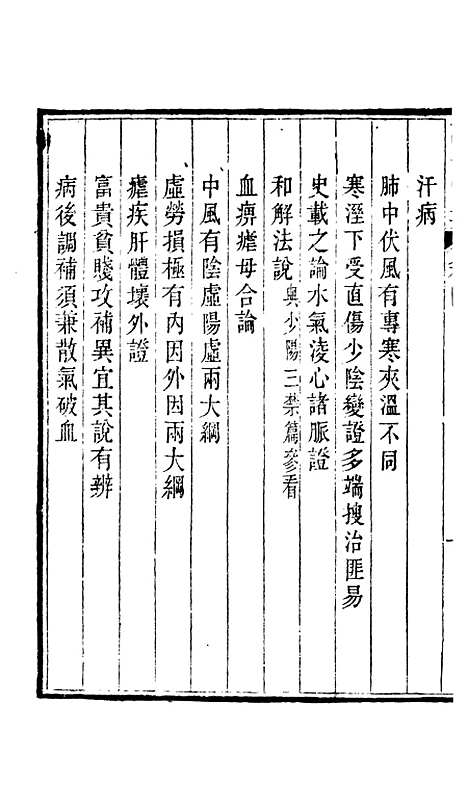 汗病
肺中伏風有專寒夾溫不同
寒溼下受直傷少陰變證多端搜治匪易
史載之論水氣淩心諸脈證
和解法說與少陽三禁篇參看
血痹瘧母合論
中風有陰虛陽虛兩大綱
虛勞損極有內因外因兩大綱
瘧疾肝體壞外證
富貴貧賤攻補異宜其說有辨
病後調補須兼散氣破血